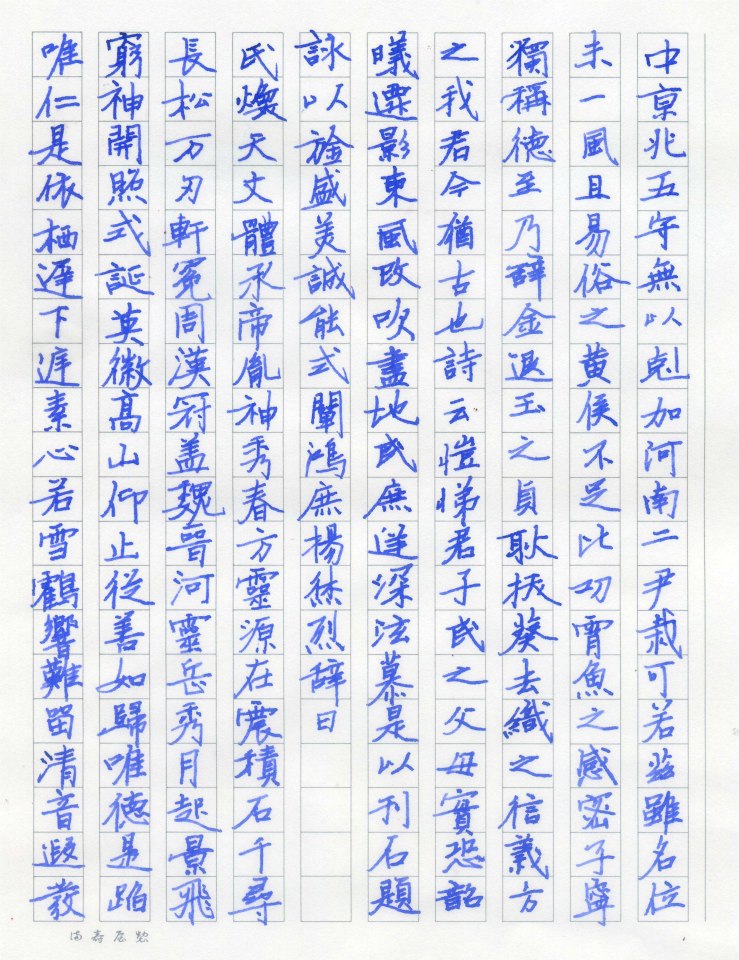 中京兆五守無以尅加河南二尹裁可若茲雖名位
未一風且易俗之黄侯不足比功霄魚之感宻子寧
獨稱德至乃辭金退玉之貞耿拔葵去織之信義方
之我君今猶古也詩云愷悌君子民之父母實恐韶
曦遷影東風改吹盡地民庶逆深泫慕是以刊石題
詠以旌盛美誠能式闡鴻庶楊烋烈辞曰
氏煥天文體承帝胤神秀春方靈源在震積石千尋
長松万刃軒冕周漢冠盖魏晉河靈岳秀月起景飛
窮神開照式誕英徽高山仰止從善如歸唯德是蹈
唯仁是依栖遲下庭素心若雪鶴響難留清音遐教